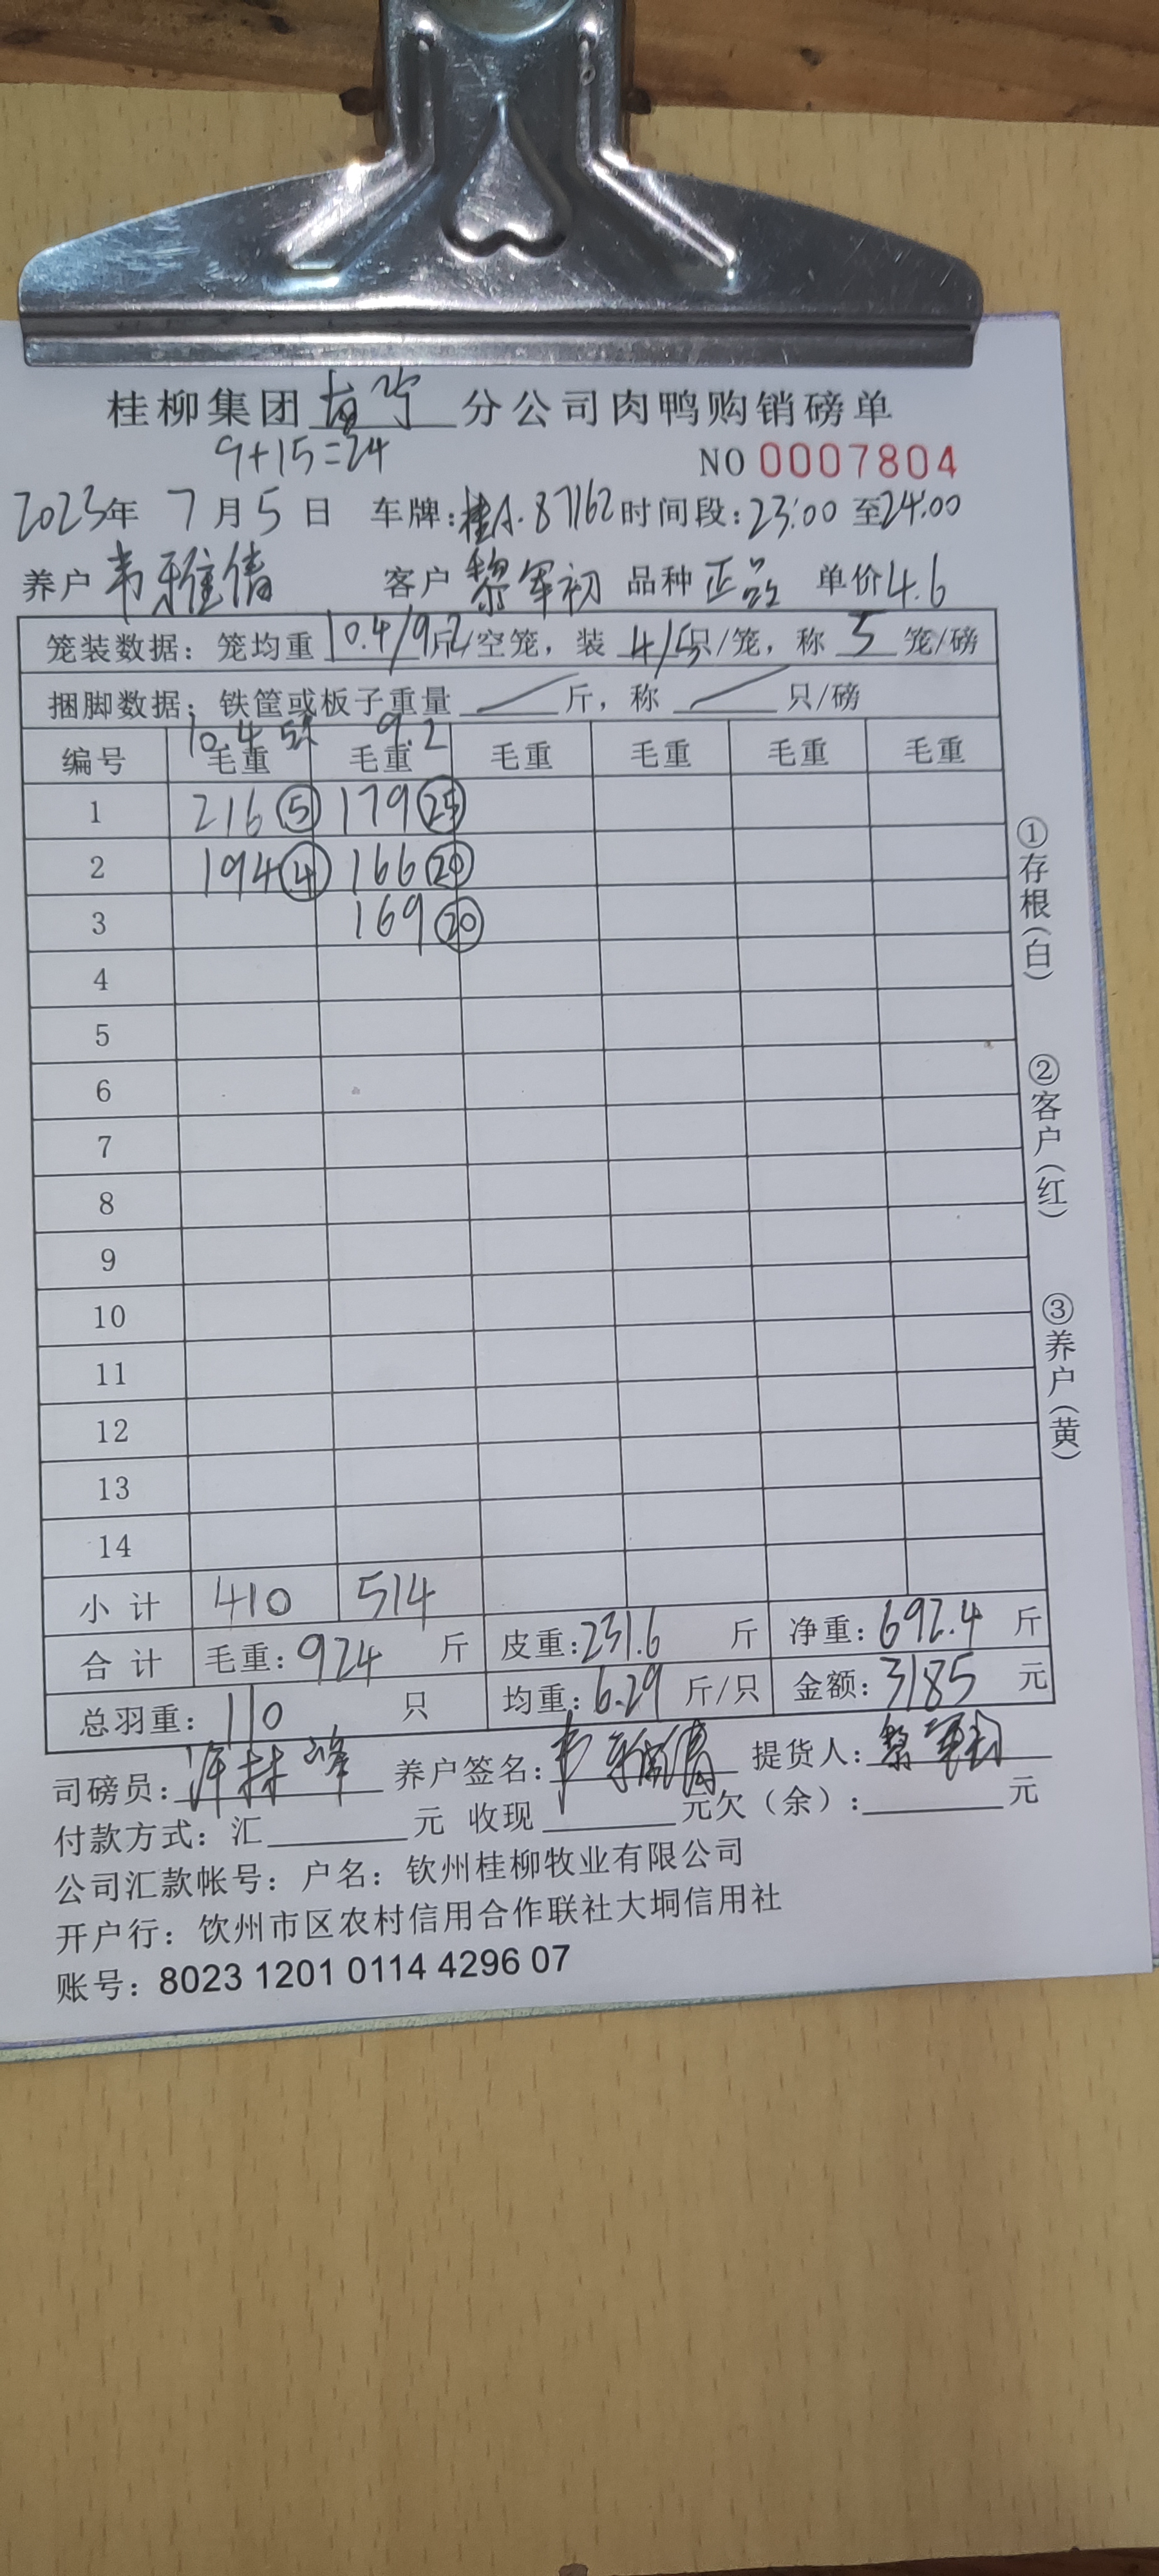 桂柳集团南宁分公司肉鸭购销磅单
9+15=24
NO 0007804
2023年 7月5日 车牌:桂A.87162 时间段:23:00至24:00
养户 韦雅倩 客户 黎军初 品种 正品 单价4.6
笼装数据:笼均重10.4/9.2斤/空笼,装4/5只/笼,称5笼/磅
捆脚数据:铁筐或板子重量 斤,称 只/磅
10.4 9.2
编号 毛重 毛重 毛重 毛重 毛重 毛重
1 216⑤ 179㉕
2 194④ 166⑳
3 169⑳
4
5
6
7
8
9
10
11
12
13
14
小计 410 514
合计 毛重:924斤 皮重:231.6斤 净重:692.4斤
总羽重:110只 均重:6.29斤/只 金额:3185元
司磅员:许林峰 养户签名:韦雅倩 提货人:黎军初
付款方式:汇 元 收现 元欠(余): 元
公司汇款帐号:户名:钦州桂柳牧业有限公司
开户行:饮州市区农村信用合作联社大垌信用社
账号:8023 1201 0114 4296 07
①存根(白)
②客户(红)
③养户(黄)